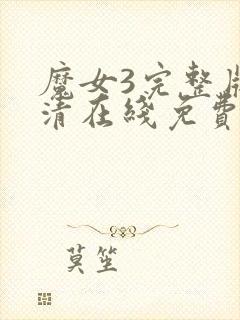 魔女3完整版
清在线免費
莫笙